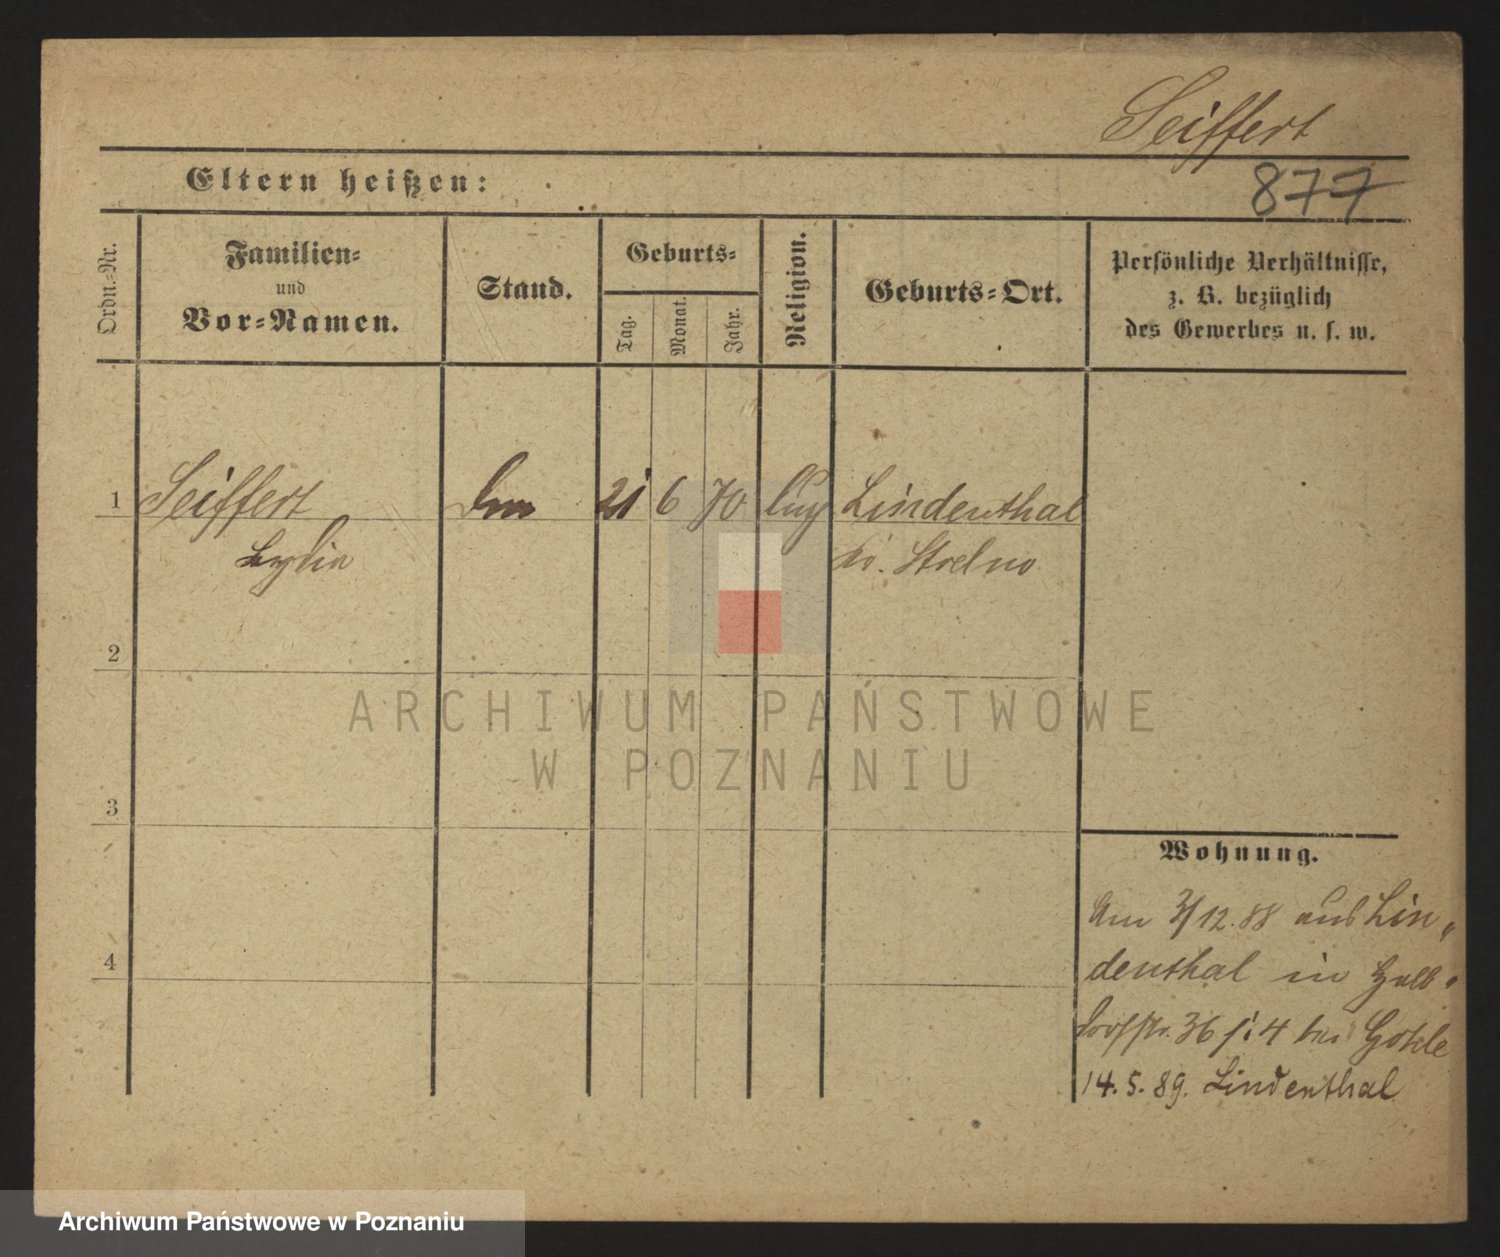 Seiffert
Eltern heißen:
877
Ordn.-Nr.
Familien-
und
Vor-Namen.
Stand.
Geburts-
Tag.
Monat.
Jahr.
Religion.
Geburts-Ort.
Persönliche Verhältnisse,
z. B. bezüglich
des Gewerbes u. s. w.
1 Seiffert 21 6 70 Lindenthal
Lydia Kr. Strelno
2
ARCHIWUM PAŃSTWOWE
W POZNANIU
3
Wohnung.
Am 3/12.88 aus Lin-
4
denthal in Halb-
dorfstr. 36 bei
14.5.89. Lindenthal
Archiwum Państwowe w Poznaniu